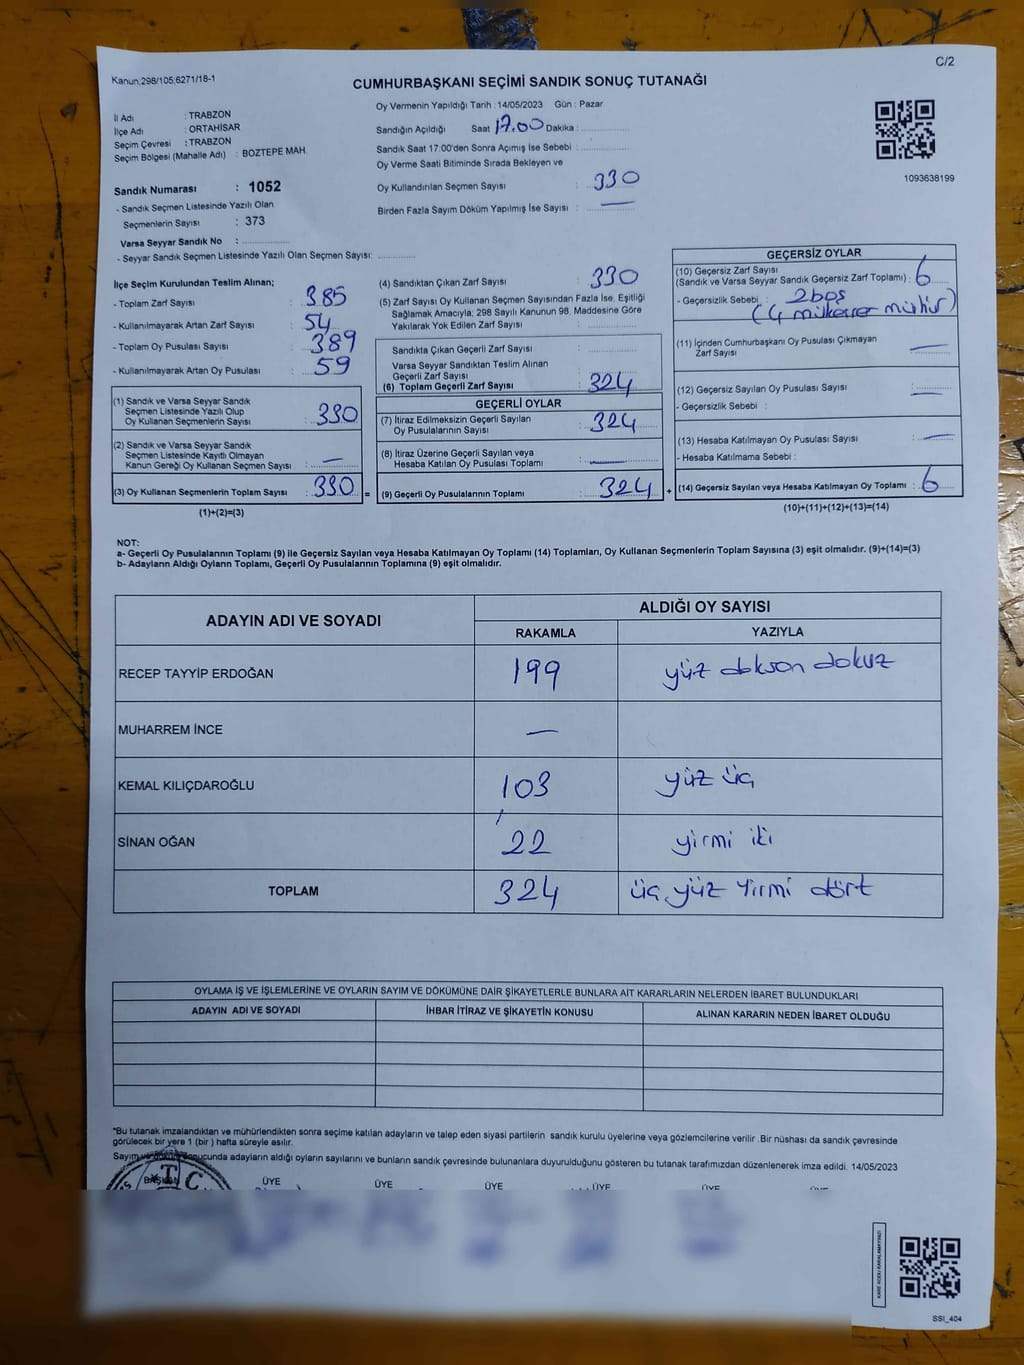 C/2
Kanun;298/105;6271/18-1
CUMHURBAŞKANI SEÇİMİ SANDIK SONUÇ TUTANAĞI
İl Adı : TRABZON
İlçe Adı : ORTAHİSAR
Seçim Çevresi : TRABZON
Seçim Bölgesi (Mahalle Adı) : BOZTEPE MAH.
Sandık Numarası : 1052
- Sandık Seçmen Listesinde Yazılı Olan
Seçmenlerin Sayısı : 373
Varsa Seyyar Sandık No :
- Seyyar Sandık Seçmen Listesinde Yazılı Olan Seçmen Sayısı:
Oy Vermenin Yapıldığı Tarih :14/05/2023 Gün : Pazar
Sandığın Açıldığı Saat 17.00 Dakika :
Sandık Saat 17:00'den Sonra Açımış İse Sebebi :
Oy Verme Saati Bitiminde Sırada Bekleyen ve
Oy Kullandırılan Seçmen Sayısı : 330
Birden Fazla Sayım Döküm Yapılmış İse Sayısı : —
1093638199
İlçe Seçim Kurulundan Teslim Alınan;
- Toplam Zarf Sayısı : 385
- Kullanılmayarak Artan Zarf Sayısı : 54
- Toplam Oy Pusulası Sayısı : 389
- Kullanılmayarak Artan Oy Pusulası : 59
(1) Sandık ve Varsa Seyyar Sandık
Seçmen Listesinde Yazılı Olup
Oy Kullanan Seçmenlerin Sayısı : 330
(2) Sandık ve Varsa Seyyar Sandık
Seçmen Listesinde Kayıtlı Olmayan
Kanun Gereği Oy Kullanan Seçmen Sayısı : —
(3) Oy Kullanan Seçmenlerin Toplam Sayısı : 330 =
(1)+(2)=(3)
(4) Sandıktan Çıkan Zarf Sayısı : 330
(5) Zarf Sayısı Oy Kullanan Seçmen Sayısından Fazla İse, Eşitliği
Sağlamak Amacıyla; 298 Sayılı Kanunun 98. Maddesine Göre
Yakılarak Yok Edilen Zarf Sayısı :
Sandıkta Çıkan Geçerli Zarf Sayısı :
Varsa Seyyar Sandıktan Teslim Alınan
Geçerli Zarf Sayısı :
(6) Toplam Geçerli Zarf Sayısı : 324
GEÇERLİ OYLAR
(7) İtiraz Edilmeksizin Geçerli Sayılan
Oy Pusulalarının Sayısı : 324
(8) İtiraz Üzerine Geçerli Sayılan veya
Hesaba Katılan Oy Pusulası Toplamı : —
(9) Geçerli Oy Pusulalarının Toplamı : 324 +
GEÇERSİZ OYLAR
(10) Geçersiz Zarf Sayısı
(Sandık ve Varsa Seyyar Sandık Geçersiz Zarf Toplamı) : 6
- Geçersizlik Sebebi : 2 boş
(4 mükerrer mühür)
(11) İçinden Cumhurbaşkanı Oy Pusulası Çıkmayan
Zarf Sayısı : —
(12) Geçersiz Sayılan Oy Pusulası Sayısı : —
- Geçersizlik Sebebi :
(13) Hesaba Katılmayan Oy Pusulası Sayısı : —
- Hesaba Katılmama Sebebi :
(14) Geçersiz Sayılan veya Hesaba Katılmayan Oy Toplamı : 6
(10)+(11)+(12)+(13)=(14)
NOT:
a- Geçerli Oy Pusulalarının Toplamı (9) ile Geçersiz Sayılan veya Hesaba Katılmayan Oy Toplamı (14) Toplamları, Oy Kullanan Seçmenlerin Toplam Sayısına (3) eşit olmalıdır. (9)+(14)=(3)
b- Adayların Aldığı Oyların Toplamı, Geçerli Oy Pusulalarının Toplamına (9) eşit olmalıdır.
ADAYIN ADI VE SOYADI ALDIĞI OY SAYISI
RAKAMLA YAZIYLA
RECEP TAYYİP ERDOĞAN 199 yüz doksan dokuz
MUHARREM İNCE —
KEMAL KILIÇDAROĞLU 103 yüz üç
SİNAN OĞAN 22 yirmi iki
TOPLAM 324 üç yüz yirmi dört
OYLAMA İŞ VE İŞLEMLERİNE VE OYLARIN SAYIM VE DÖKÜMÜNE DAİR ŞİKAYETLERLE BUNLARA AİT KARARLARIN NELERDEN İBARET BULUNDUKLARI
ADAYIN ADI VE SOYADI İHBAR İTİRAZ VE ŞİKAYETİN KONUSU ALINAN KARARIN NEDEN İBARET OLDUĞU
*Bu tutanak imzalandıktan ve mühürlendikten sonra seçime katılan adayların ve talep eden siyasi partilerin sandık kurulu üyelerine veya gözlemcilerine verilir .Bir nüshası da sandık çevresinde
görülecek bir yere 1 (bir ) hafta süreyle asılır.
Sayım ve döküm sonucunda adayların aldığı oyların sayılarını ve bunların sandık çevresinde bulunanlara duyurulduğunu gösteren bu tutanak tarafımızdan düzenlenerek imza edildi. 14/05/2023
BAŞKAN ÜYE ÜYE ÜYE ÜYE ÜYE
T.C.
SSI_404